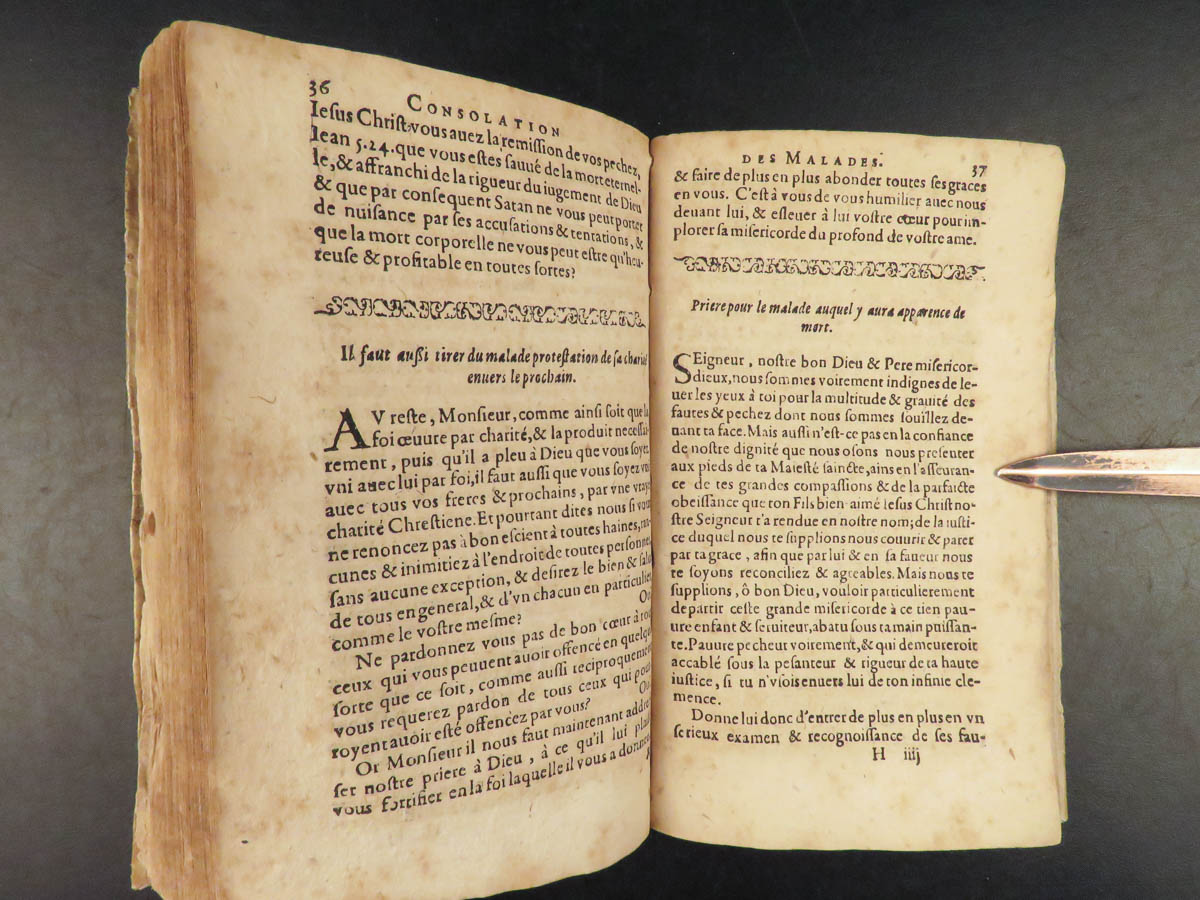 36
CONSOLATION
Iesus Christ vous auez la remission de vos pechez,
Iean 5.24. que vous estes sauué de la mort eternel-
le, & affranchi de la rigueur du iugement de Dieu
& que par consequent Satan ne vous peut porter
de nuisance par ses accusations & tentations, &
que la mort corporelle ne vous peut estre qu'heu-
reuse & profitable en toutes sortes?
Il faut aussi tirer du malade protestation de sa charité
enuers le prochain.
AV reste, Monsieur, comme ainsi soit que la
foi œuure par charité, & la produit necessai-
rement, puis qu'il a pleu à Dieu que vous soyez
vni auec lui par foi, il faut aussi que vous soyez vni
auec tous vos freres & prochains, par vne vraye
charité Chrestiene. Et pourtant dites nous si vous
ne renoncez pas à bon escient à toutes haines, ran-
cunes & inimitiez à l'endroit de toutes personnes
sans aucune exception, & desirez le bien & salut
de tous en general, & d'vn chacun en particulier
comme le vostre mesme? Ou
Ne pardonnez vous pas de bon cœur à tous
ceux qui vous peuuent auoir offencé en quelque
sorte que ce soit, comme aussi reciproquement
vous requerez pardon de tous ceux qui pour-
royent auoir esté offencez par vous? Ou
Or Monsieur il nous faut maintenant addres-
ser nostre priere à Dieu, à ce qu'il lui plaise
vous fortifier en la foi laquelle il vous a donnee
DES MALADES. 37
& faire de plus en plus abonder toutes ses graces
en vous. C'est à vous de vous humilier auec nous
deuant lui, & esleuer à lui vostre cœur pour im-
plorer sa misericorde du profond de vostre ame.
Priere pour le malade auquel y aura apparence de
mort.
SEigneur, nostre bon Dieu & Pere misericor-
dieux, nous sommes voirement indignes de le-
uer les yeux à toi pour la multitude & grauité des
fautes & pechez dont nous sommes souillez de-
uant ta face. Mais aussi n'est-ce pas en la confiance
de nostre dignité que nous osons nous presenter
aux pieds de ta Maiesté saincte, ains en l'asseuran-
ce de tes grandes compassions & de la parfaicte
obeissance que ton Fils bien-aimé Iesus Christ no-
stre Seigneur t'a rendue en nostre nom; de la iusti-
ce duquel nous te supplions nous couurir & parer
par ta grace, afin que par lui & en sa faueur nous
te soyons reconciliez & agreables. Mais nous te
supplions, ô bon Dieu, vouloir particulierement
departir ceste grande misericorde à ce tien pau-
ure enfant & seruiteur, abatu sous ta main puissan-
te. Pauure pecheur voirement, & qui demeureroit
accablé sous la pesanteur & rigueur de ta haute
iustice, si tu n'vsois enuers lui de ton infinie cle-
mence.
Donne lui donc d'entrer de plus en plus en vn
serieux examen & recognoissance de ses fau-
H iiij